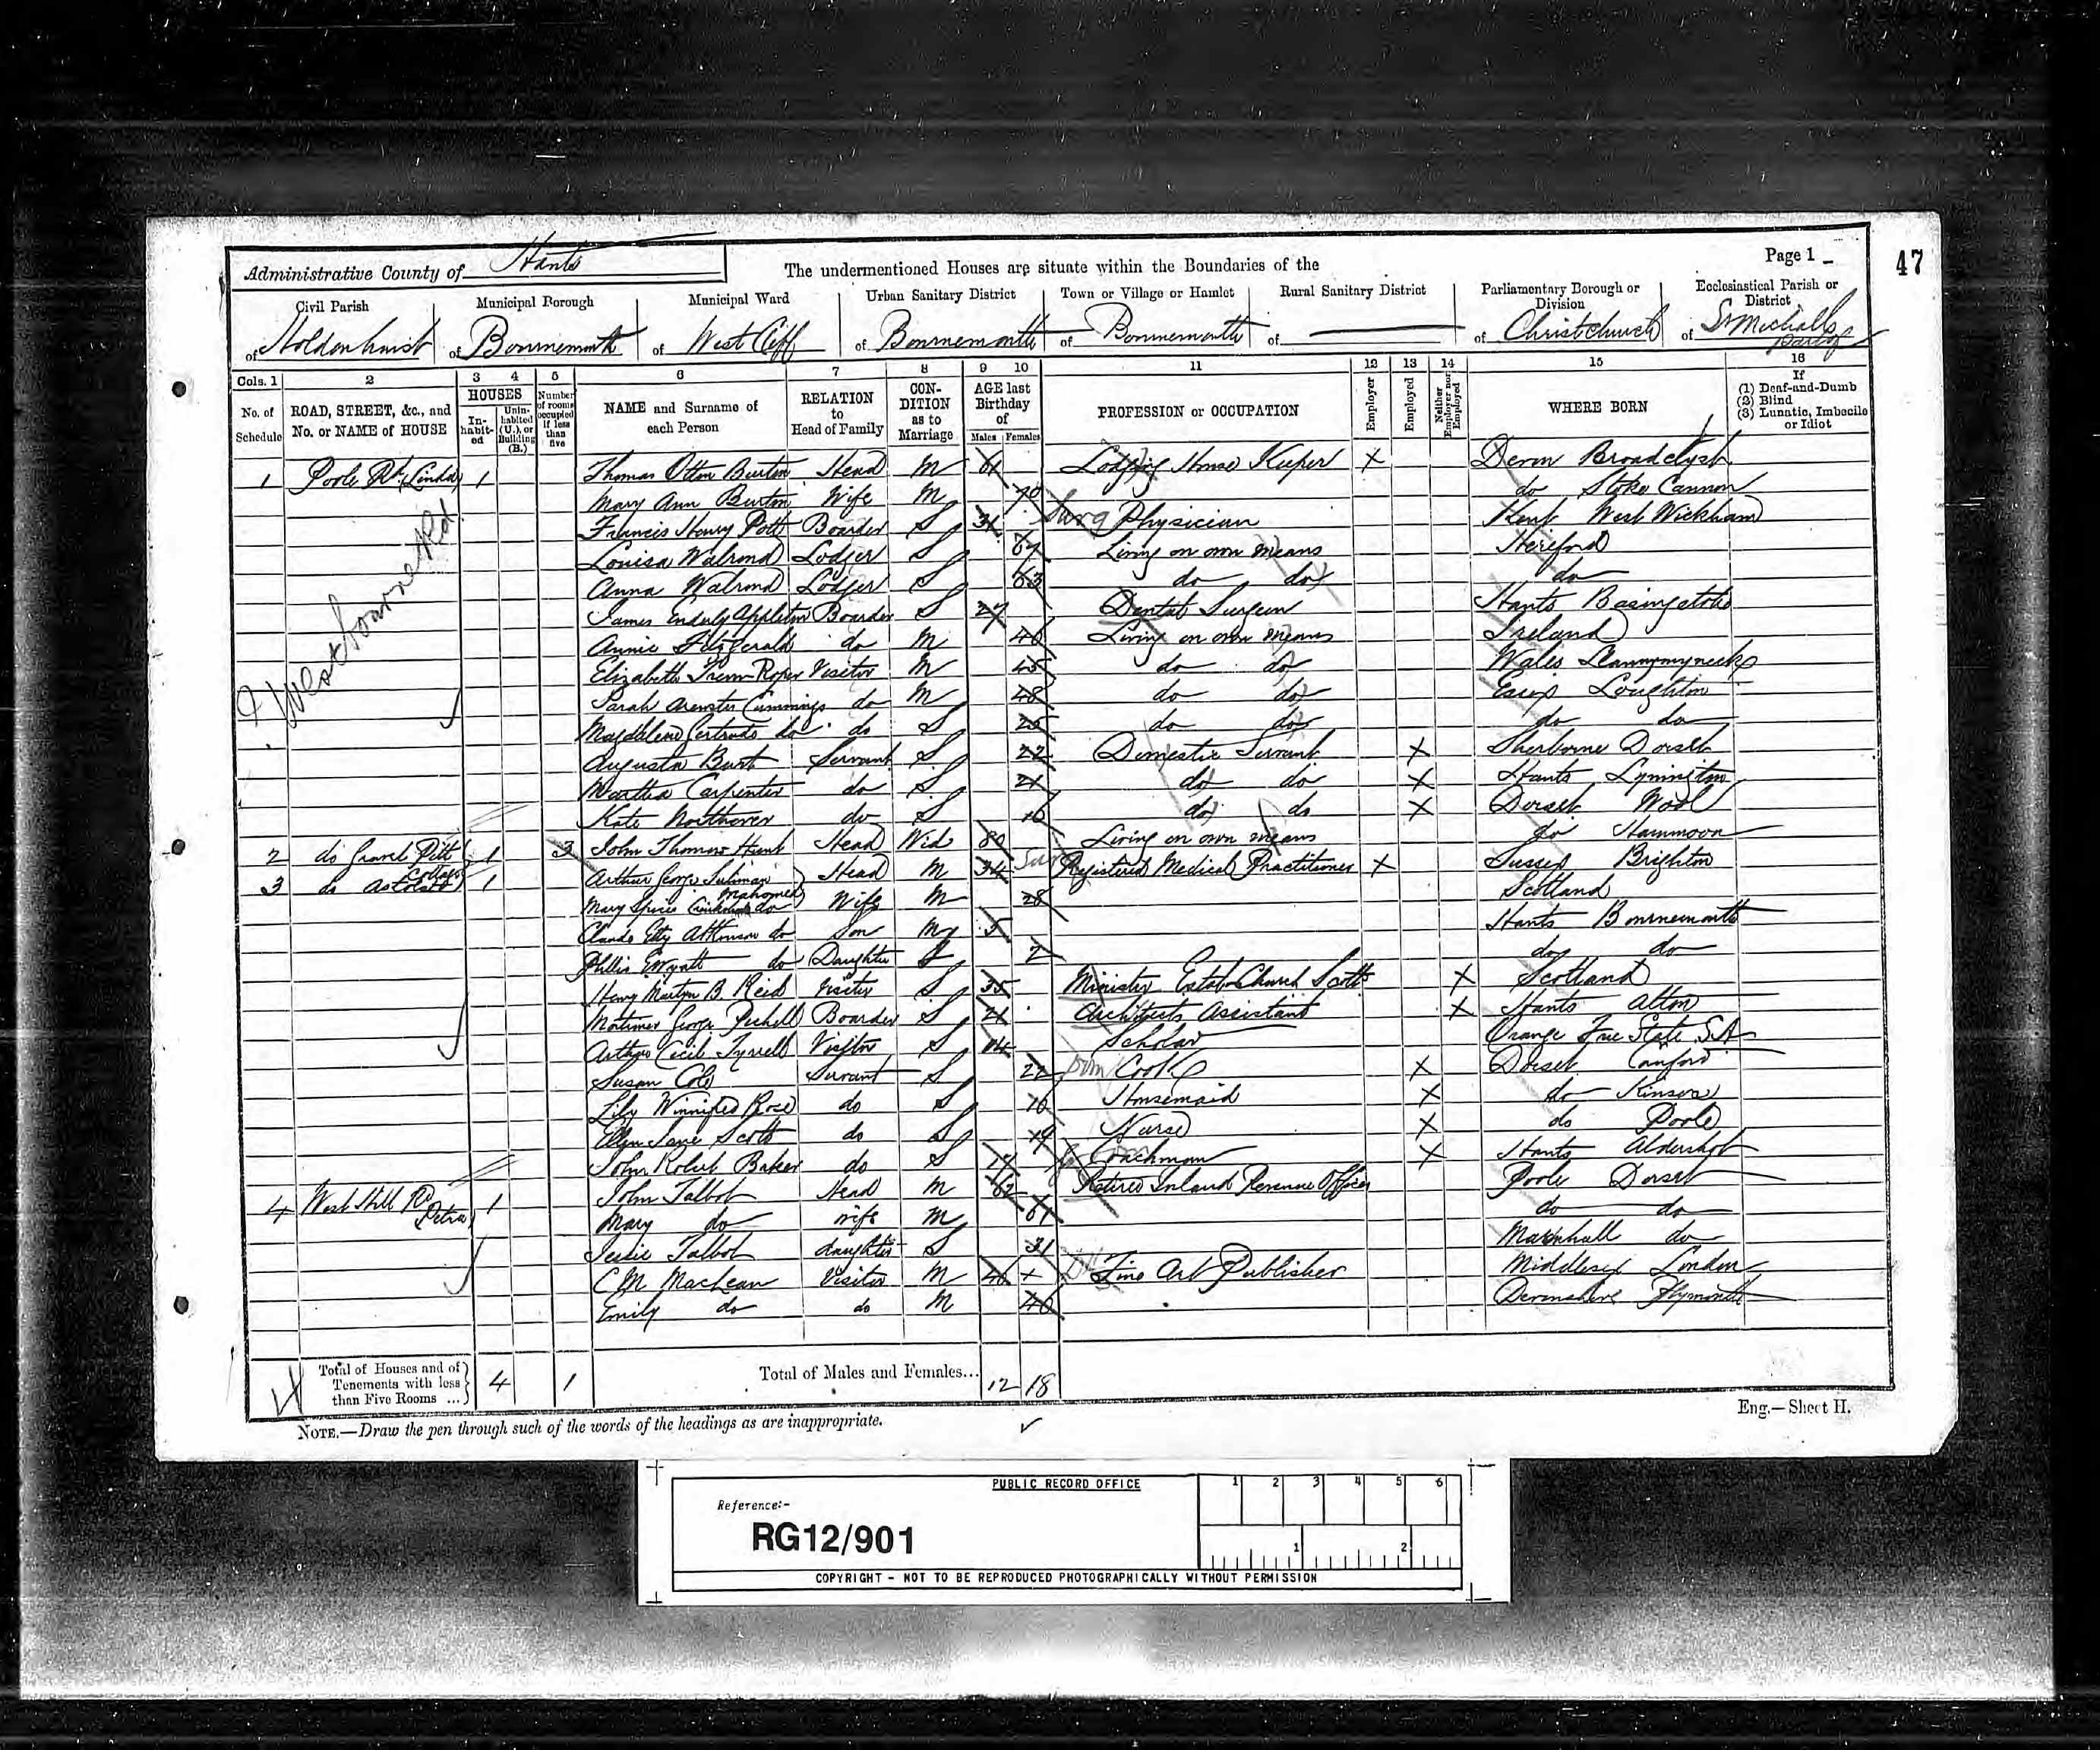 Administrative County of Hants
The undermentioned Houses are situate within the Boundaries of the
Page 1
47
Civil Parish of Holdenhurst
Municipal Borough of Bournemouth
Municipal Ward of West Cliff
Urban Sanitary District of Bournemouth
Town or Village or Hamlet of Bournemouth
Rural Sanitary District of
Parliamentary Borough or Division of Christchurch
Ecclesiastical Parish or District of St Michalls part of
Cols. 1 2 3 4 5 6 7 8 9 10 11 12 13 14 15 16
No. of Schedule
ROAD, STREET, &c., and No. or NAME of HOUSE
HOUSES
In-habit-ed
Unin-habited (U.), or Building (B.)
Number of rooms occupied if less than five
NAME and Surname of each Person
RELATION to Head of Family
CON-DITION as to Marriage
AGE last Birthday of
Males Females
PROFESSION or OCCUPATION
Employer
Employed
Neither Employer nor Employed
WHERE BORN
If
(1) Deaf-and-Dumb
(2) Blind
(3) Lunatic, Imbecile or Idiot
1 Poole Rd, Linda 1 Thomas Otton Burton Head M 61 Lodging House Keeper X Devon Broadclyst
Mary Ann Burton Wife M 70 do Stoke Cannon
Francis Henry Pott Boarder S 31 Surg Physician Kent West Wickham
Louisa Walrond Lodger S 67 Living on own means Hereford
Anna Walrond Lodger S 63 do do do
James Enderly Appleton Boarder S 27 Dental Surgeon Hants Basingstoke
Annie Fitzgerald do M 40 Living on own means Ireland
Elizabeth Trevor-Roper Visitor M 45 do do Wales
Sarah Cummings do M 48 do do Essex Loughton
Magdalene Gertrude do do S 25 do do do do
Augusta Burt Servant S 22 Domestic Servant X Sherborne Dorset
Martha Carpenter do S 21 do do X Hants Lymington
Kate Northover do S 16 do do X Dorset Wool
Westbourne Rd
2 do Gravel Pitt Cottage 1 3 John Thomas Hunt Head Wid 80 Living on own means do Hammoon
3 do Astolat 1 Arthur George Suliman Mahomed Head M 34 Sur Registered Medical Practitioner X Sussex Brighton
Mary Spiers do Wife M 28 Scotland
Claude Etty Attkinson do Son 5 Hants Bournemouth
Phillis Wyatt do Daughter S 2 do do
Henry Martyn B. Reid Visitor S 35 Minister Estab Church Scott X Scotland
Mortimer George Pechell Boarder S 21 Architects Assistant X Hants Alton
Arthur Cecil Tyrrell Visitor S 14 Scholar Orange Free State S.A
Susan Cole Servant S 22 Dom Cook X Dorset Canford
Lily Winnifred Rose do S 16 Housemaid X do Kinson
Ellen Jane Scott do S 19 Nurse X do Poole
John Robert Baker do S 17 Coachman X Hants Aldershot
4 West Hill Rd Petra 1 John Talbot Head M 62 Retired Inland Revenue Officer Poole Dorset
Mary do wife M 61 do do
Jessie Talbot daughter S 31 Marnhull do
C M MacLean Visitor M 46 + Fine Art Publisher Middlesex London
Emily do do M 40 Devonshire Plymouth
Total of Houses and of Tenements with less than Five Rooms ... 4 1
Total of Males and Females... 12 18
NOTE.—Draw the pen through such of the words of the headings as are inappropriate.
Eng.—Sheet H.
PUBLIC RECORD OFFICE
1 2 3 4 5 6
Reference:-
RG12/901
1 2
COPYRIGHT - NOT TO BE REPRODUCED PHOTOGRAPHICALLY WITHOUT PERMISSION